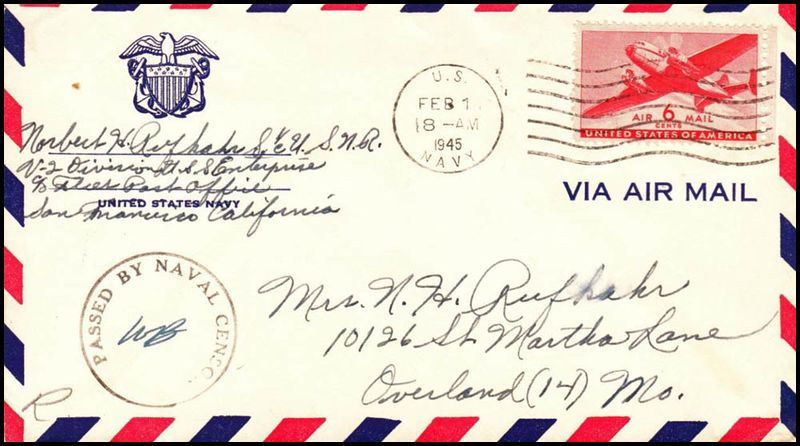 Norbert H. Rufkahr S 1/c U.S.N.R.
V-2 Division U.S.S. Enterprise
c/o Fleet Post Office
San Francisco California
UNITED STATES NAVY
U.S.
FEB 1
8 - AM
1945
NAVY
AIR 6 MAIL
CENTS
UNITED STATES OF AMERICA
VIA AIR MAIL
PASSED BY NAVAL CENSO
WB
Mrs. N. H. Rufkahr
10126 St. Martha Lane
Overland (14) Mo.
R